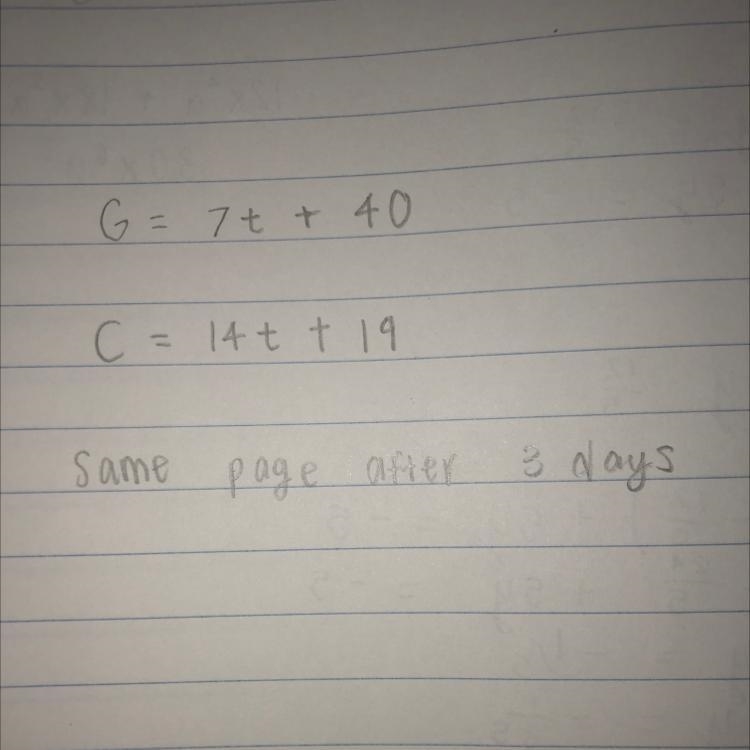 G = 7t + 40
C = 14t + 19
Same page after 3 days